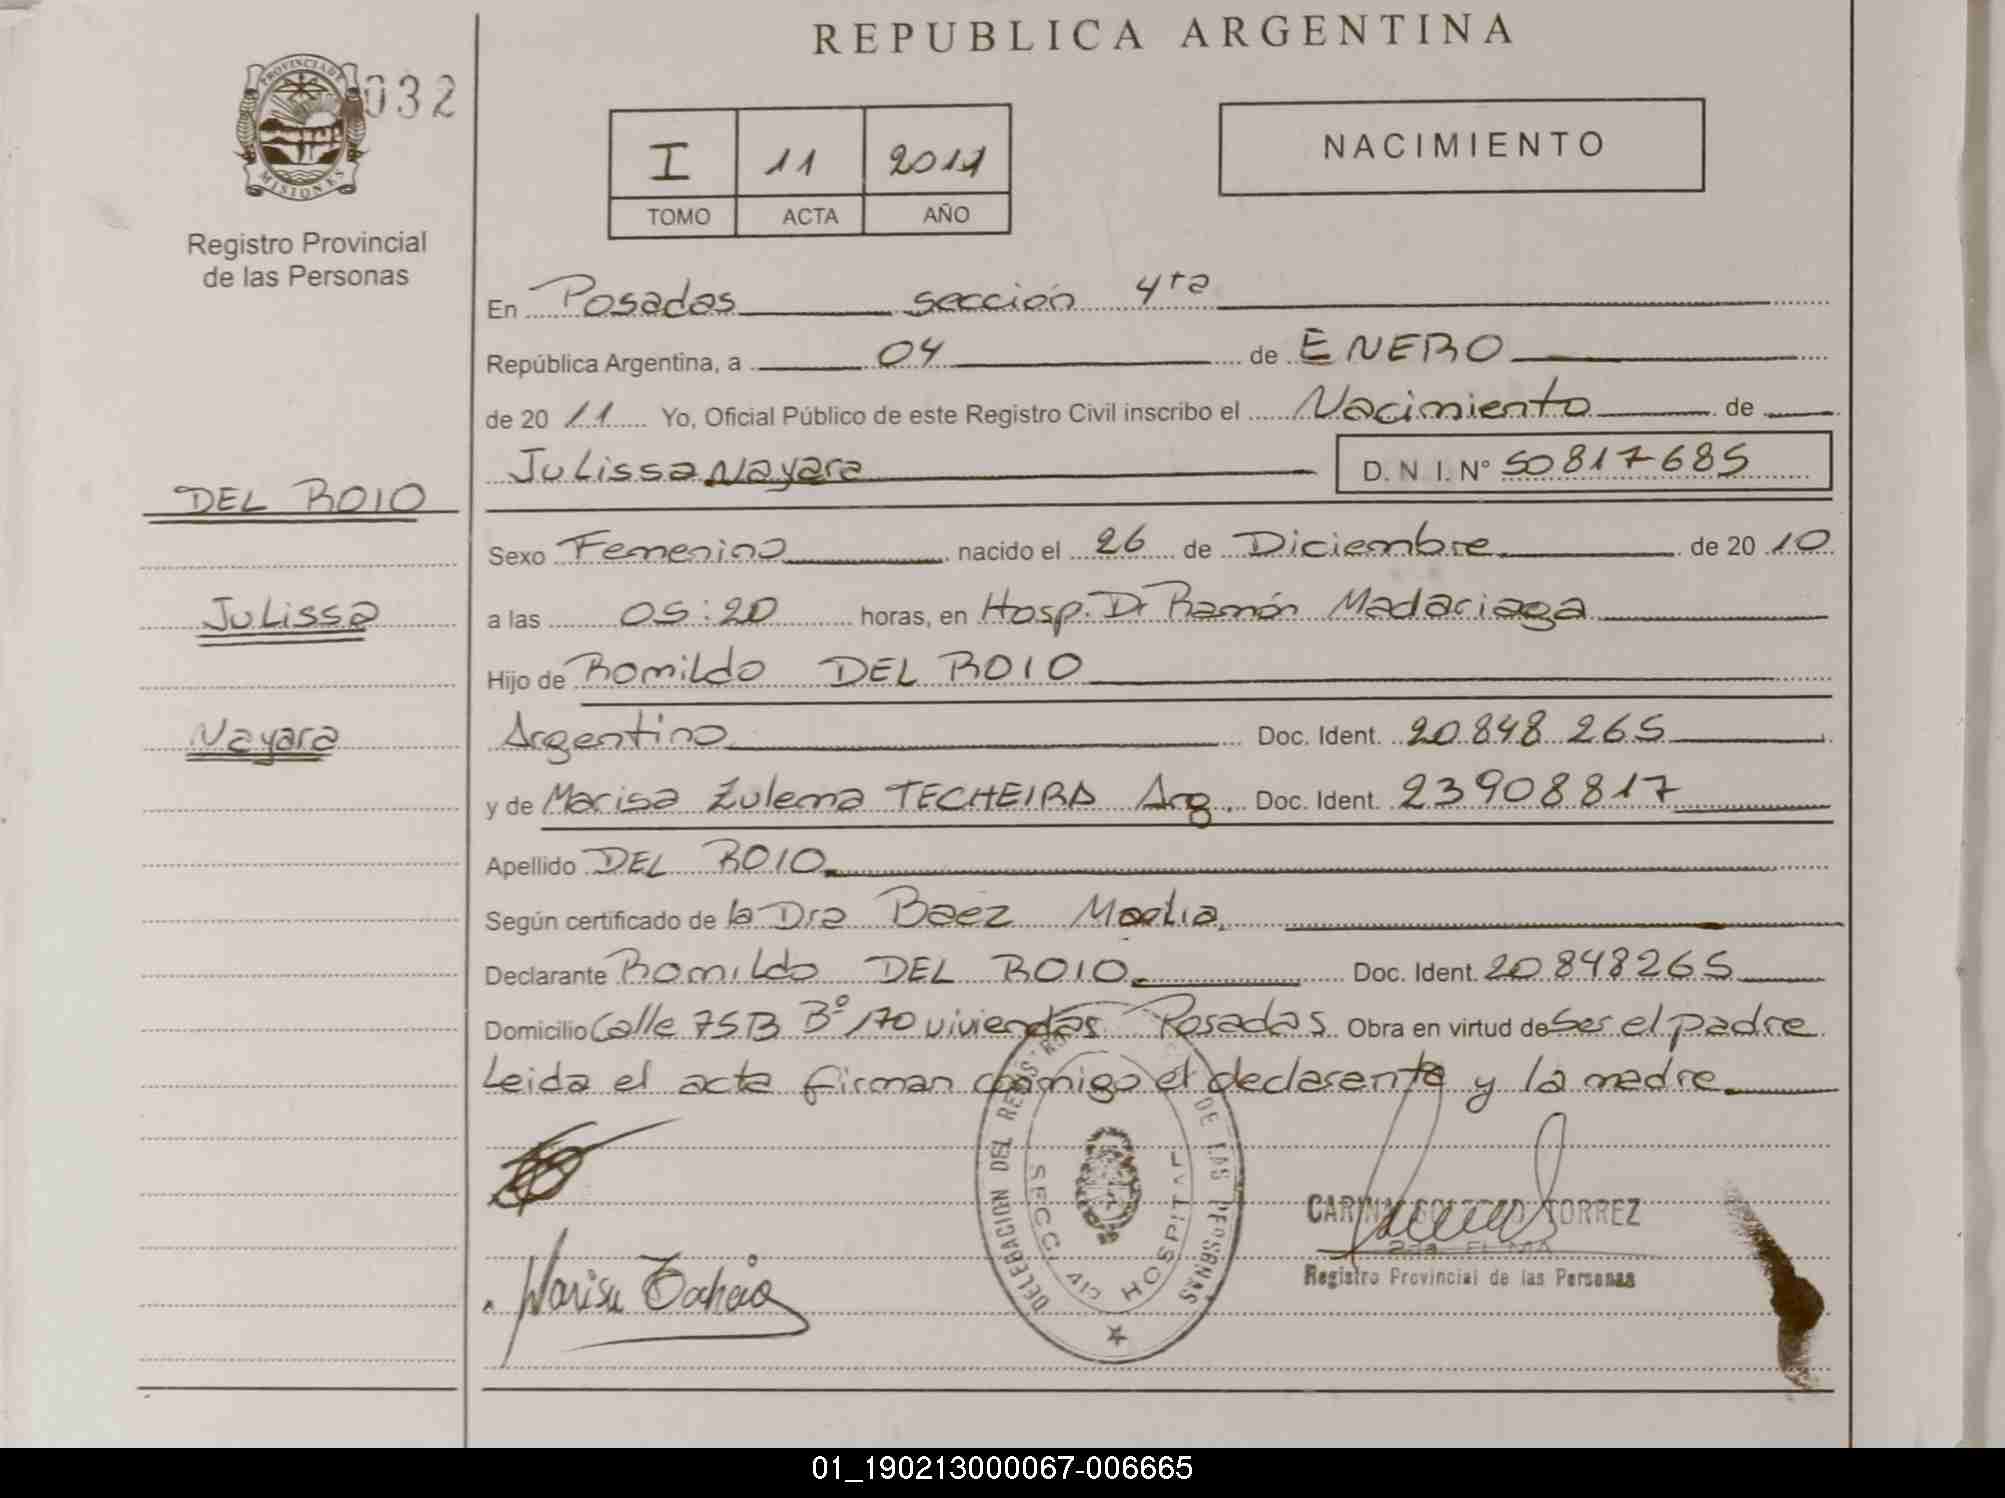 REPUBLICA ARGENTINA
PROVINCIA DE
MISIONES
032
Registro Provincial
de las Personas
I 11 2011
TOMO ACTA AÑO
NACIMIENTO
En Posadas sección 4ta
República Argentina, a 04 de ENERO
de 2011 Yo, Oficial Público de este Registro Civil inscribo el Nacimiento de
Julissa Nayara D. N. I. N° 50817685
DEL ROIO
Julissa
Nayara
Sexo Femenino nacido el 26 de Diciembre de 2010
a las 05:20 horas, en Hosp. Dr Ramón Madariaga
Hijo de Romildo DEL ROIO
Argentino Doc. Ident. 20848 265
y de Marisa Zulema TECHEIRA Arg. Doc. Ident. 23908817
Apellido DEL ROIO
Según certificado de la Dra Baez
Declarante Romildo DEL ROIO Doc. Ident. 20848265
Domicilio Calle 75B B° 170 viviendas Posadas Obra en virtud de Ser el padre
Leida el acta firman conmigo el declarante y la madre
DELEGACION DEL REGISTRO DE LAS PERSONAS
HOSPITAL
TORREZ
Registro Provincial de las Personas
Marisa
01_190213000067-006665